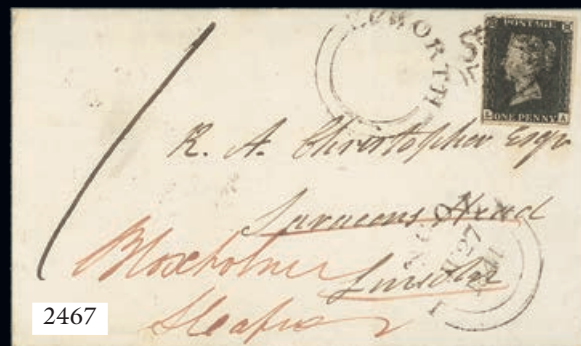 POSTAGE
ONE PENNY
R. A. Christopher Esqr
Saracens Head
Lincoln
Bloxholme
Sleaford
27
2467